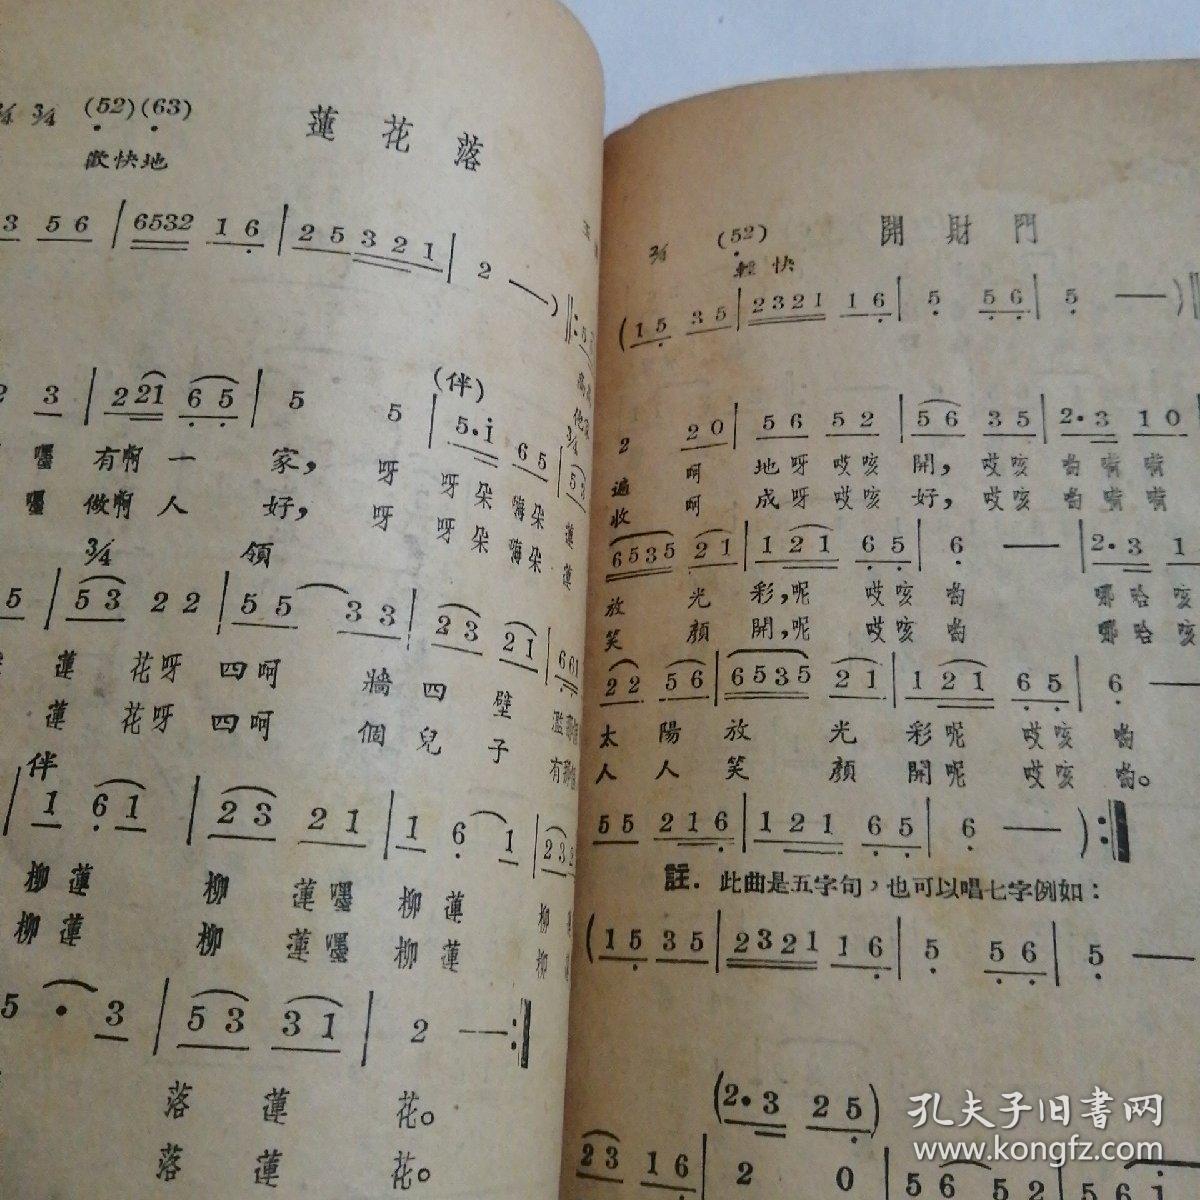 3/4 (52)(63) 蓮花落
歡快地
3 56 | 6532 16 | 25 321 | 2 — ) ‖:
(伴)
2 3 | 2 21 65 | 5 5 | 5·i 65 |
嚜 有啊 一 家, 呀 呀朵 嗨朵 蓮
嚜 做啊 人 好, 呀 呀朵 嗨朵 蓮
3/4 領
5 | 53 22 | 55 33 | 23 21 |
蓮 花呀 四呵 牆 四 壁
蓮 花呀 四呵 個 兒 子
伴
| 1 61 | 23 21 | 1 6 1 |
柳 蓮 柳 蓮嚜 柳 蓮 柳
柳 蓮 柳 蓮嚜 柳 蓮 柳
5 · 3 | 53 31 | 2 — :‖
落 蓮 花。
落 蓮 花。
2/4 (52) 開財門
輕快
(15 35 | 2321 16 | 5 56 | 5 — )‖
2 20 | 56 52 | 56 35 | 2·3 10
遍 呵 地呀 哎咳 開, 哎咳
收 呵 成呀 哎咳 好, 哎咳
6535 21 | 1 21 65 | 6 — | 2·3 1
放 光 彩,呢 哎咳 喲 哪哈 咳
笑 顏 開,呢 哎咳 喲 哪哈 咳
22 56 | 6535 21 | 1 21 65 | 6 —
太 陽 放 光 彩呢 哎咳 喲
人 人 笑 顏 開呢 哎咳 喲。
55 216 | 1 21 65 | 6 — ):‖
註. 此曲是五字句，也可以唱七字例如：
(15 35 | 2321 16 | 5 56 | 5 —
(2·3 25)
23 16 | 2 0 | 56 52
孔夫子旧書网
www.kongfz.com